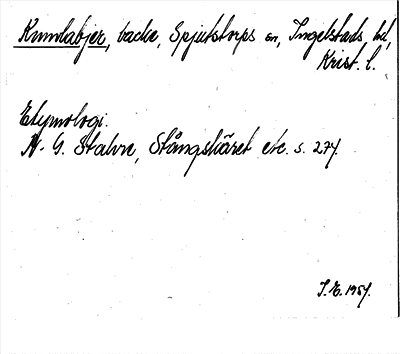 Kumlabjer, backe, Spjutstorps sn, Ingelstads hd,
Krist. l.
Etymologi.
N. G. Stalvre, Stångskäret etc. s. 274.
J. E. 1957.